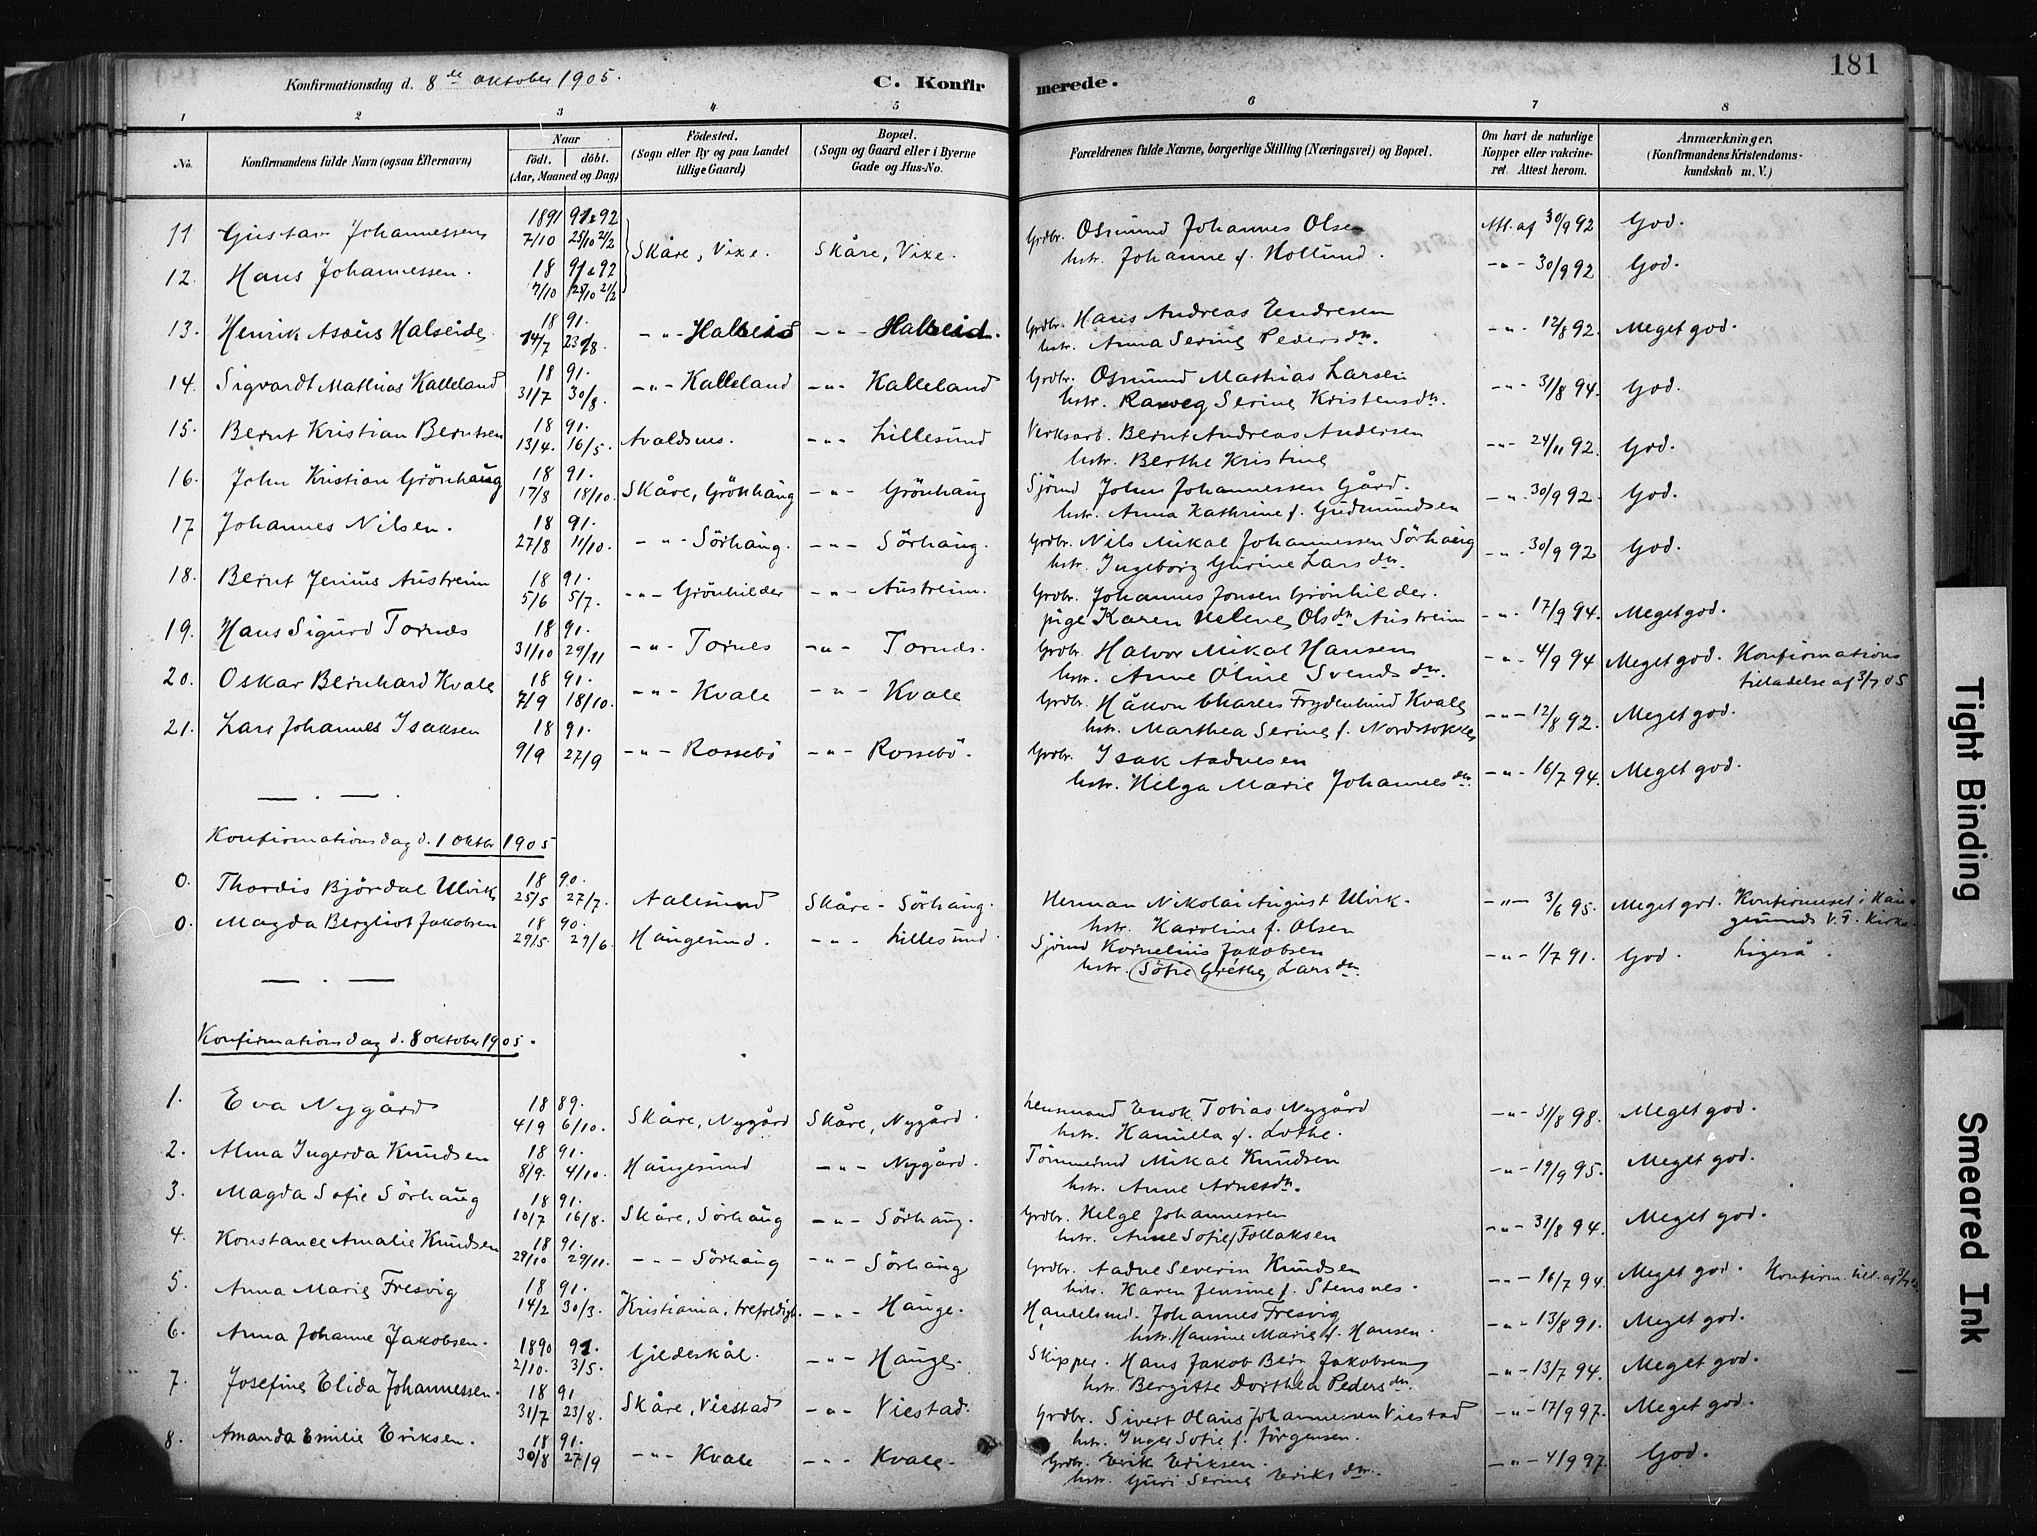 Konfirmationsdag d. 8de oktober 1905.
C. Konfirmerede.
181
1 2 3 4 5 6 7 8
No. Konfirmandens fulde Navn (ogsaa Efternavn) Naar födt. döbt. (Aar, Maaned og Dag) Födested. (Sogn eller By og paa Landet tillige Gaard) Bopæl. (Sogn og Gaard eller i Byerne Gade og Hus-No. Forældrenes fulde Navne, borgerlige Stilling (Næringsvei) og Bopæl. Om havt de naturlige Kopper eller vakcineret. Attest herom. Anmærkninger. (Konfirmandens Kristendomskundskab m. V.)
11 Gustav Johannessen 1891 7/10 91 & 92 25/10 21/2 Skåre, Vixe. Skåre, Vixe. Grdbr. Osmund Johannes Olsen Att. af 30/9 92 God.
12. Hans Johannessen. 18 91 & 92 7/10 25/10 21/2 hstr. Johanne f. Hollund. -"- 30/9 92 God.
13. Henrik Asseus Halseide 18 91. 14/7 23/8. -"- Halseid -"- Halseid. Grdbr. Hans Andreas Endresen
hstr. Anna Serine Pedersdtr. -"- 12/8 92. Meget god.
14. Sigvardt Mathias Kalleland 18 91. 31/7 30/8. -"- Kalleland -"- Kalleland Grdbr. Osmund Mathias Larsen
hstr. Ranveg Serine Kristensdtr. -"- 31/8 94. God.
15. Bernt Kristian Berntsen 18 91. 13/4. 16/5. Avaldsnes. -"- Lillesund Verksarb. Bernt Andreas Andersen
hstr. Berthe Kristine -"- 24/11 92. God.
16. John Kristian Grönhaug 18 91. 17/8 18/10. Skåre, Grönhaug -"- Grönhaug Sjömd Johns Johannessen Gård.
hstr. Anna Kathrine f. Gudmundsen -"- 30/9 92. God.
17 Johannes Nilsen. 18 91. 27/8 11/10. -"- Sörhaug. -"- Sörhaug. Grdbr. Nils Mikal Johannessen Sörhaug
hstr. Ingeborg Gurine Larsdtr. -"- 30/9 92 God.
18. Bernt Jenius Austreim 18 91. 5/6 5/7. -"- Grönhilder -"- Austreim. Grdbr. Johannes Jonsen Grönhilder.
pige Karen Helene Olsdtr Austreim -"- 17/9 94. Meget god.
19. Hans Sigurd Tornes 18 91. 31/10 29/11 -"- Tornes -"- Tornes. Grdbr. Halvor Mikal Hansen
hstr. Anne Oline Svendsdtr. -"- 4/9 94 Meget god. Konfirmations tilladelse af 3/7 05
20. Oskar Bernhard Kvale 18 91. 7/9 18/10. -"- Kvale -"- Kvale Grdbr. Håkon Charles Frydenlund Kvale
hstr. Marthea Serine f. Nordstokke -"- 12/8 92. Meget god.
21. Lars Johannes Isaksen 18 91. 9/9 27/9 -"- Rossebö -"- Rossebö. Grdbr. Isak Aadnesen
hstr. Helga Marie Johannesdtr. -"- 16/7 94. Meget god.
Konfirmationsdag d. 1 oktbr 1905
0. Thordis Björdal Ulvik 18 90. 25/5 27/7. Aalesund Skåre - Sörhaug. Herman Nikolai August Ulvik.
hstr. Karoline f. Olsen -"- 3/6 95. Meget god. Konfirmeret i Haugesunds V.F. Kirke
0. Magda Bergliot Jakobsen 18 90. 29/5. 29/6. Haugesund. -"- Lillesund. Sjömd Kornelius Jakobsen
hstr. Sofie Grethe Larsdtr. -"- 1/7 91. God. Ligeså.
Konfirmationsdag d. 8 oktober 1905.
1. Eva Nygård 18 89. 4/9 6/10. Skåre, Nygård Skåre, Nygård Lensmand Enok Tobias Nygård
hstr. Kamilla f. Lothe. -"- 31/8 98. Meget god.
2. Alma Ingerda Knudsen 18 91. 8/9. 4/10. Haugesund -"- Nygård. Tömmermd Mikal Knudsen
hstr. Anne Arnesdtr. -"- 19/9 95. Meget god.
3. Magda Sofie Sörhaug 18 91. 10/7 16/8. Skåre, Sörhaug -"- Sörhaug. Grdbr. Helge Johannessen
hstr. Anne Sofie Follaksen -"- 31/8 94. Meget god.
4. Konstance Amalie Knudsen 18 91. 29/10 29/11. -"- Sörhaug -"- Sörhaug Grdbr. Aadne Severin Knudsen
hstr. Karen Jensine f. Stensnes. -"- 16/7 94. Meget god. Konfirm. till. af
5. Anna Marie Fresvig 18 91. 14/2 30/3. Kristiania, trefoldigh. -"- Hauge. Handelsmd. Johannes Fresvig
hstr. Hansine Marie f. Hansen. -"- 13/8 91. Meget god.
6. Anna Johanne Jakobsen. 1890 91. 2/10. 3/5. Gildeskål. -"- Hauge. Skipper. Hans Jakob Berg Jakobsen
hstr. Bergitte Dorthea Pedersdtr. -"- 13/7 94. Meget god.
7. Josefine Elida Johannessen. 18 91 31/7 23/8. Skåre, Viestad -"- Viestad. Grdbr. Sivert Olaus Johannessen Viestad
hstr. Inger Sofie f. Jörgensen. -"- 17/9 97. Meget god.
8. Amanda Emilie Eriksen. 18 91. 30/8 27/9 -"- Kvale -"- Kvale. Grdbr. Erik Eriksen.
hstr. Guri Serine Eriksdtr. -"- 4/9 97. God.
Tight Binding
Smeared Ink